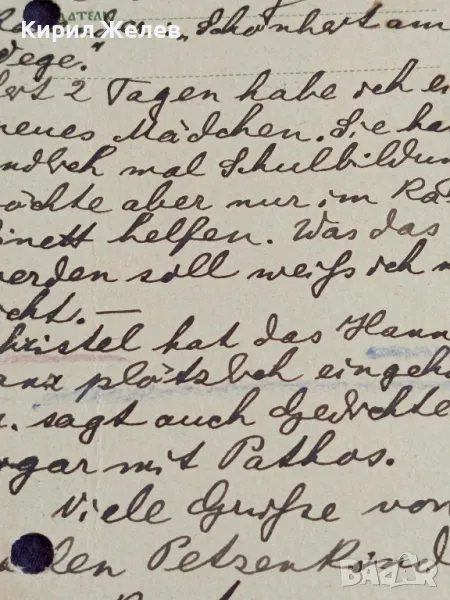 Кирил Желев
"Schönheit am
Wege."
2 Tagen habe ich
neues Mädchen. Sie ha
endlich mal Schulbildun
möchte aber nur im Ka
binett helfen. Was das
werden soll weiß ich n
icht. —
Christel hat das Hann
anz plötzlich eingeh
sagt auch Gedichte
ogar mit Pathos.
Viele Grüße von
allen PetzenKind
bazar